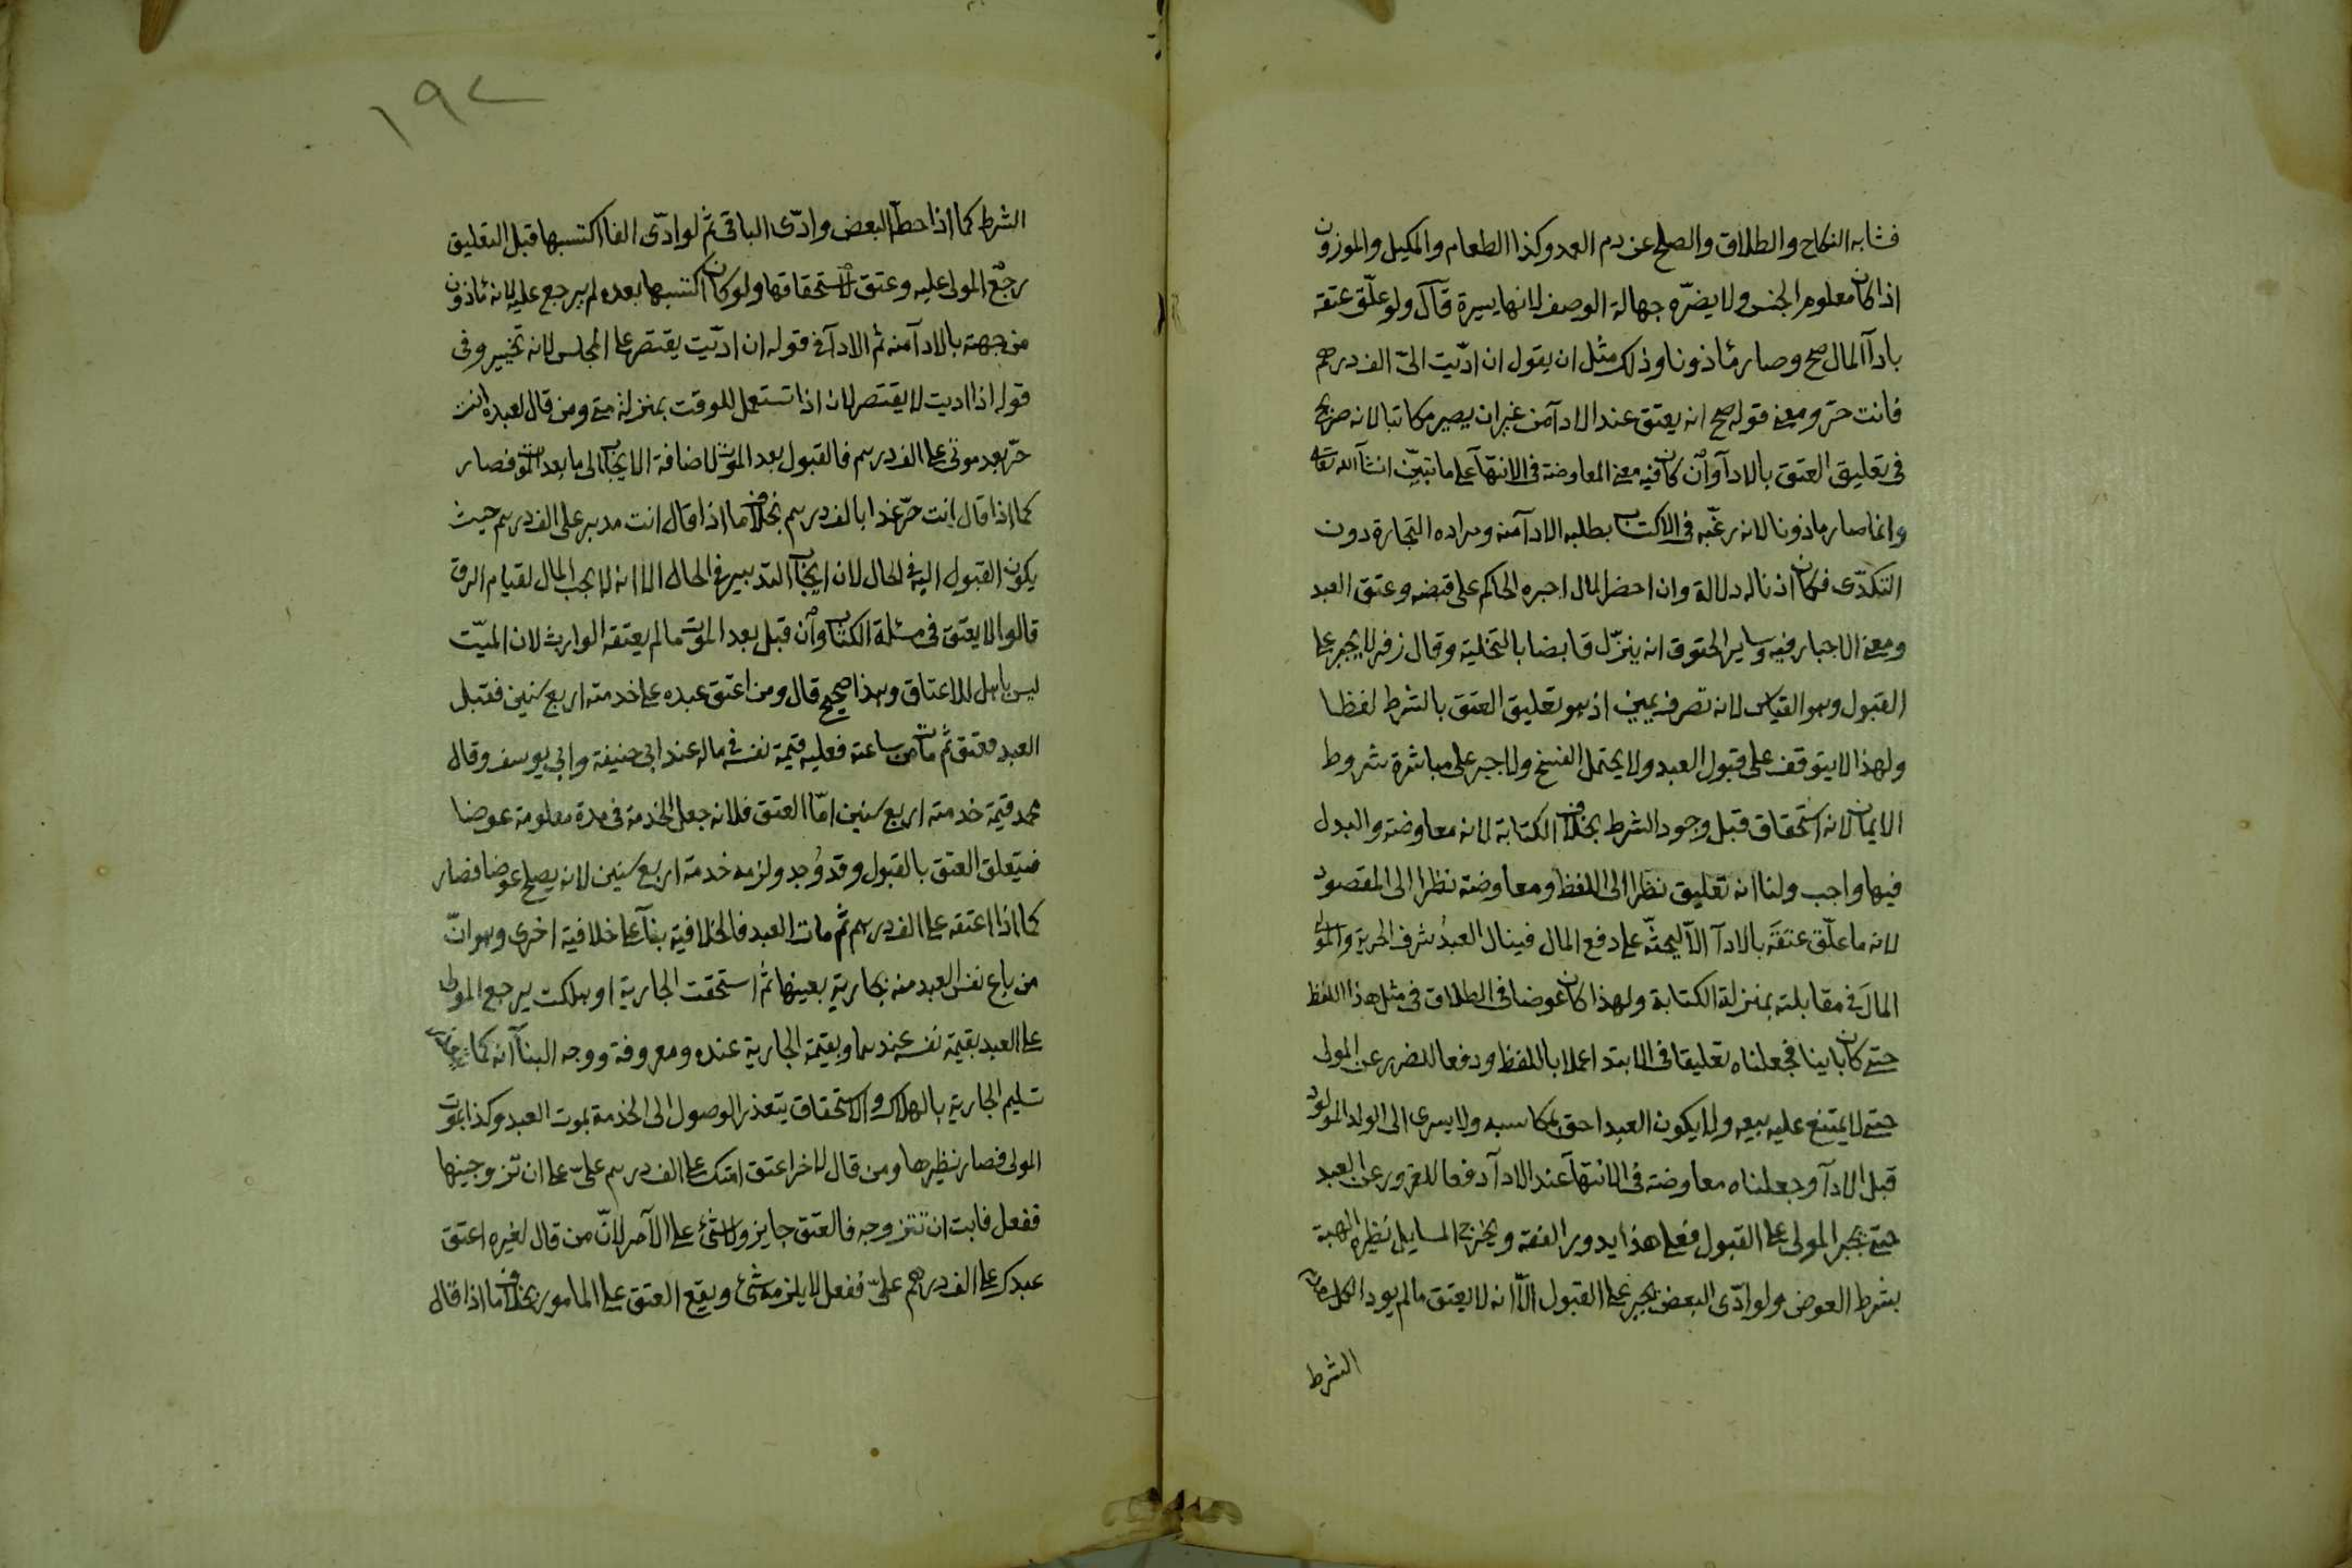 فشابه النكاح والطلاق والصلح عن دم العمد وكذا الطعام والمكيل والموزون
اذا كان معلوم الجنس ولا يضرّه جهالة الوصف لانها يسيرة قال ولو علّق عتقه
بادآ المال صح وصار مأذونا وذلك مثل ان يقول ان ادّيت الىّ الف درهم
فانت حرّ ومعنى قوله صح انه يعتق عند الادآ من غير ان يصير مكاتبا لانه صريح
فى تعليق العتق بالادآ وان كان فيه معنى المعاوضة فى الانتهآ على ما تبيّن انشآ الله تعالى
وانما صار ماذونا لانه رغّبه فى الاكتساب بطلبه الادآ منه ومراده التجارة دون
التكدّى فكان اذنا له دلالة وان احضر المال اجبره الحاكم على قبضه وعتق العبد
ومعنى الاجبار فيه وساير الحقوق انه ينزّل قابضا بالتخلية وقال زفر لا يجبر على
القبول وهو القياس لانه تصرف يمين اذ هو تعليق العتق بالشرط لفظا
ولهذا لا يتوقف على قبول العبد ولا يحتمل الفسخ ولا جبر على مباشرة شروط
الايمان لانه استحقاق قبل وجود الشرط بخلاف الكتابة لانه معاوضة والبدل
فيها واجب ولنا انه تعليق نظرا الى اللفظ ومعاوضة نظرا الى المقصود
لانه ما علّق عتقَه بالادآ الّا ليحثّه على دفع المال فينال العبدُ شرف الحرية والمولى
المالَ فى مقابلته بمنزلة الكتابة ولهذا كان عوضا فى الطلاق فى مثل هذا اللفظ
حتى كان باينا فجعلناه تعليقا فى الابتدا عملا باللفظ ودفعا للضرر عن المولى
حتى لا يمتنع عليه بيعه ولا يكون العبد احق بمكاسبه ولا يسرى الى الولد المولود
قبل الادآ وجعلناه معاوضة فى الانتهآ عند الادآ دفعا للغرور عن العبد
حتى يجبر المولى على القبول فعلى هذا يدور الفقه ويخرج المسايل نظيره الهبة
بشرط العوض ولو ادّى البعض يجبر على القبول الّا انه لا يعتق مالم يود الكل
الشرط
١٩٢
الشرط كما اذا حط البعض وادّى الباقى ثم لو ادّى الفا اكتسبها قبل التعليق
رجع المولى عليه وعتق لاستحقاقها ولو كان اكتسبها بعده لم يرجع عليه لانه مأذون
من جهته بالادآ منه ثم الادآ فى قوله ان ادّيت يقتصر على المجلس لانه تخيير وفى
قوله اذا اديت لا يقتصر لان اذا تستعمل للوقت بمنزلة متى ومن قال لعبده انت
حرّ بعد موتى على الف درهم فالقبول بعد الموت لاضافة الايجاب الى ما بعد الموت فصار
كما اذا قال انت حرّ غدا بالف درهم بخلاف ما اذا قال انت مدبر على الف درهم حيث
يكون القبول اليه فى الحال لان ايجاب التدبير فى الحال الا انه لا يجب المال لقيام الرق
قالوا لا يعتق فى مسئلة الكتاب وان قبل بعد الموت ما لم يعتقه الوارث لان الميّت
ليس باهل للاعتاق وهذا صحيح قال ومن اعتق عبده على خدمته اربع سنين فقبل
العبد فعتق ثم مات من ساعته فعليه قيمة نفسه فى ماله عند ابى حنيفة وابى يوسف وقال
محمد قيمة خدمته اربع سنين امّا العتق فلانه جعل الخدمة فى مدة معلومة عوضا
فيتعلق العتق بالقبول وقد وُجد ولزمه خدمة اربع سنين لانه يصلح عوضا فصار
كما اذا اعتقه على الف درهم ثم مات العبد فالخلافية بنآ على خلافية اخرى وهو انّ
من باع نفس العبد منه بجارية بعينها ثم استحقت الجارية او هلكت يرجع المولى
على العبد بقيمة نفسه عندهما وبقيمة الجارية عنده ومعروفة ووجه البنآ انه كما
تسليم الجارية بالهلاك والاستحقاق يتعذر الوصول الى الخدمة بموت العبد وكذا بموت
المولى فصار نظيرها ومن قال لاخر اعتق امتك على الف درهم علىّ على ان تزوجنيها
ففعل فابت ان تتزوجه فالعتق جايز ولا شئ على الآمر لانّ من قال لغيره اعتق
عبدك على الف درهم علىّ ففعل لا يلزمه شئ ويقع العتق على المامور بخلاف ما اذا قال